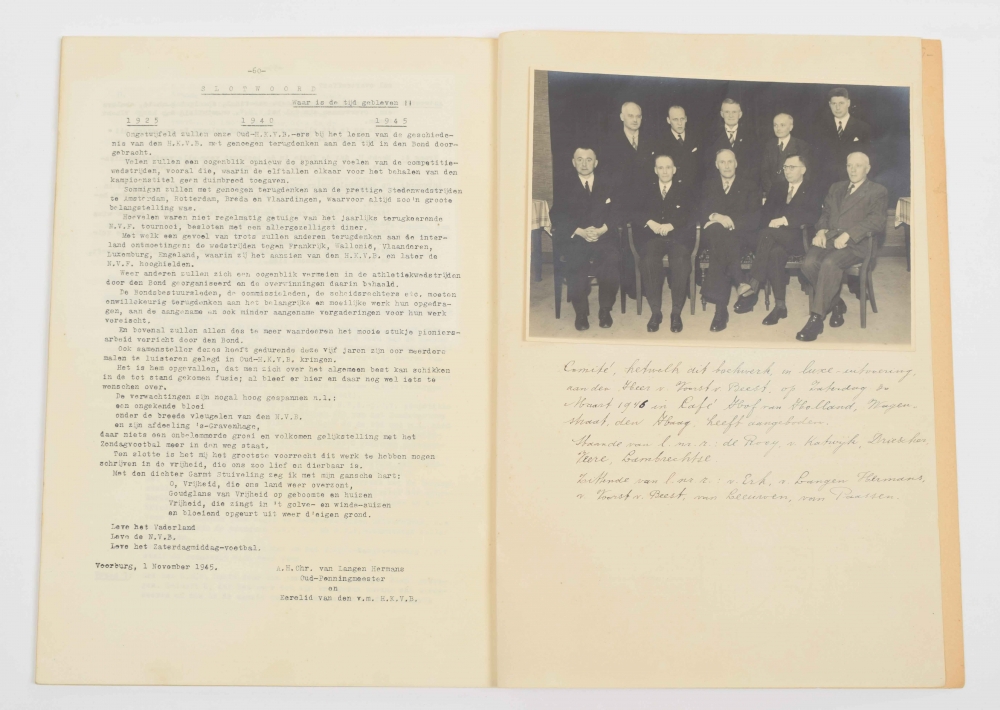 -60-
S L O T W O O R D
Waar is de tijd gebleven !!
1 9 2 5 1 9 4 2 1 9 4 5
Ongetwijfeld zullen onze Oud-H.K.V.B.-ers bij het lezen van de geschiede-
nis van den H.K.V.B. met genoegen terugdenken aan den tijd in den Bond door-
gebracht.
Velen zullen een oogenblik opnieuw de spanning voelen van de competitie-
wedstrijden, vooral die, waarin de elftallen elkaar voor het behalen van den
kampioenstitel geen duimbreed toegaven.
Sommigen zullen met genoegen terugdenken aan de prettige Stedenwedstrijden
te Amsterdam, Rotterdam, Breda en Vlaardingen, waarvoor altijd zoo'n groote
belangstelling was.
Hoevelen waren niet regelmatig getuige van het jaarlijks terugkeerende
N.V.F. tournooi, besloten met een allergezelligst diner.
Met welk een gevoel van trots zullen anderen terugdenken aan de inter-
land ontmoetingen: de wedstrijden tegen Frankrijk, Wallonië, Vlaanderen,
Luxemburg, Engeland, waarin zij het aanzien van den H.K.V.B. en later de
N.V.F. hooghielden.
Weer anderen zullen zich een oogenblik vermeien in de athletiekwedstrijden
door den Bond georganiseerd en de overwinningen daarin behaald.
De Bondsbestuursleden, de commissieleden, de scheidsrechters etc. moeten
onwillekeurig terugdenken aan het belangrijke en moeilijke werk hun opgedra-
gen, aan de aangename en ook minder aangename vergaderingen voor hun werk
vereischt.
En bovenal zullen allen des te meer waardeeren het mooie stukje pioniers-
arbeid verricht door den Bond.
Ook samensteller dezes heeft gedurende deze vijf jaren zijn oor meerdere
malen te luisteren gelegd in Oud-H.K.V.B. kringen.
Het is hem opgevallen, dat men zich over het algemeen best kan schikken
in de tot stand gekomen fusie; al bleef er hier en daar nog wel iets te
wenschen over.
De verwachtingen zijn nogal hoog gespannen n.l.:
een ongekende bloei
onder de breede vleugelen van den N.V.B.
en zijn afdeeling 's-Gravenhage,
daar niets een onbelemmerde groei en volkomen gelijkstelling met het
Zondagvoetbal meer in den weg staat.
Ten slotte is het mij het grootste voorrecht dit werk te hebben mogen
schrijven in de vrijheid, die ons zoo lief en dierbaar is.
Met den dichter Garmt Stuiveling zeg ik met mijn gansche hart:
O, Vrijheid, die ons land weer overzont,
Goudglans van Vrijheid op geboomte en huizen
Vrijheid, die zingt in 't golve- en winde-suizen
en bloeiend opgeurt uit weer d'eigen grond.
Leve het Vaderland
Leve de N.V.B.
Leve het Zaterdagmiddag-voetbal.
Voorburg, 1 November 1945.
Chr. van Langen Hermans
Oud-Penningmeester
en
Eerelid van den v.m. H.K.V.B.
Comité, hetwelk dit boekwerk, in luxe-uitvoering,
aan den Heer v. Voorst v. Beest, op Zaterdag
Maart 1946 in Café Hof van Holland, Wagen-
straat, den Haag heeft aangeboden.
Staande van l. n. r.: de Rooy, v. Katwijk,
Veere, Lambrechtse
Zittende van l. n. r.: v. Erk, v. Langen Hermans,
v. Voorst v. Beest, van Leeuwen, van Paassen